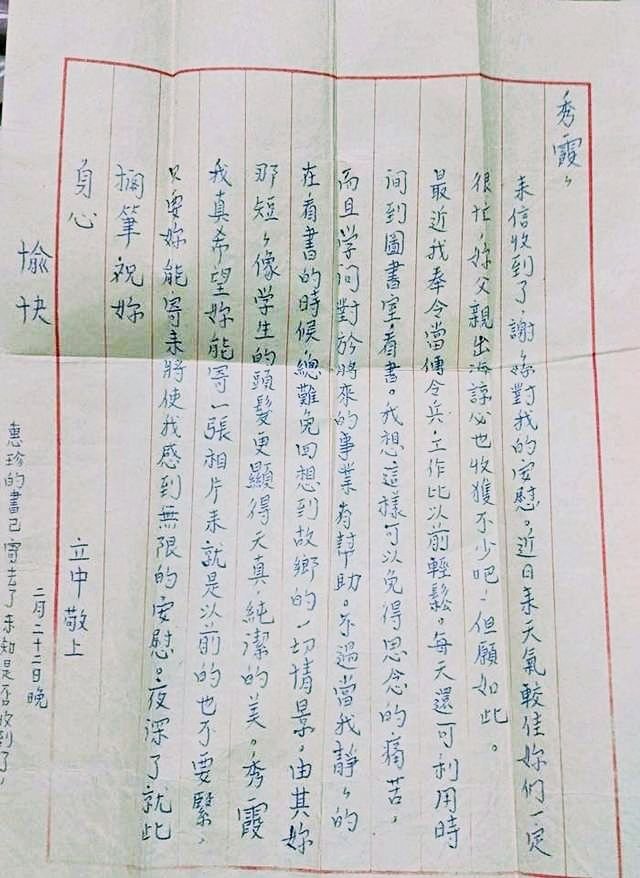 秀霞：
來信收到了，謝々妳對我的安慰。近日來天氣較佳妳們一定
很忙，妳父親出海諒必也收獲不少吧，但願如此。
最近我奉令當傳令兵，工作比以前輕鬆。每天還可利用時
间到圖書室看書。我想這樣可以免得思念的痛苦，
而且学问對於將來的事業有幫助。不過當我靜々的
在看書的時候，總難免回想到故鄉的一切情景。由其妳
那短，像学生的頭髮更顯得天真，純潔的美。秀霞
我真希望妳能寄一張相片來就是以前的也不要緊，
只要妳能寄來將使我感到無限的安慰。夜深了就此
擱筆祝妳
身心
愉快
立中敬上
二月二十二日晚
惠珍的書已寄去了未知是否收到了，